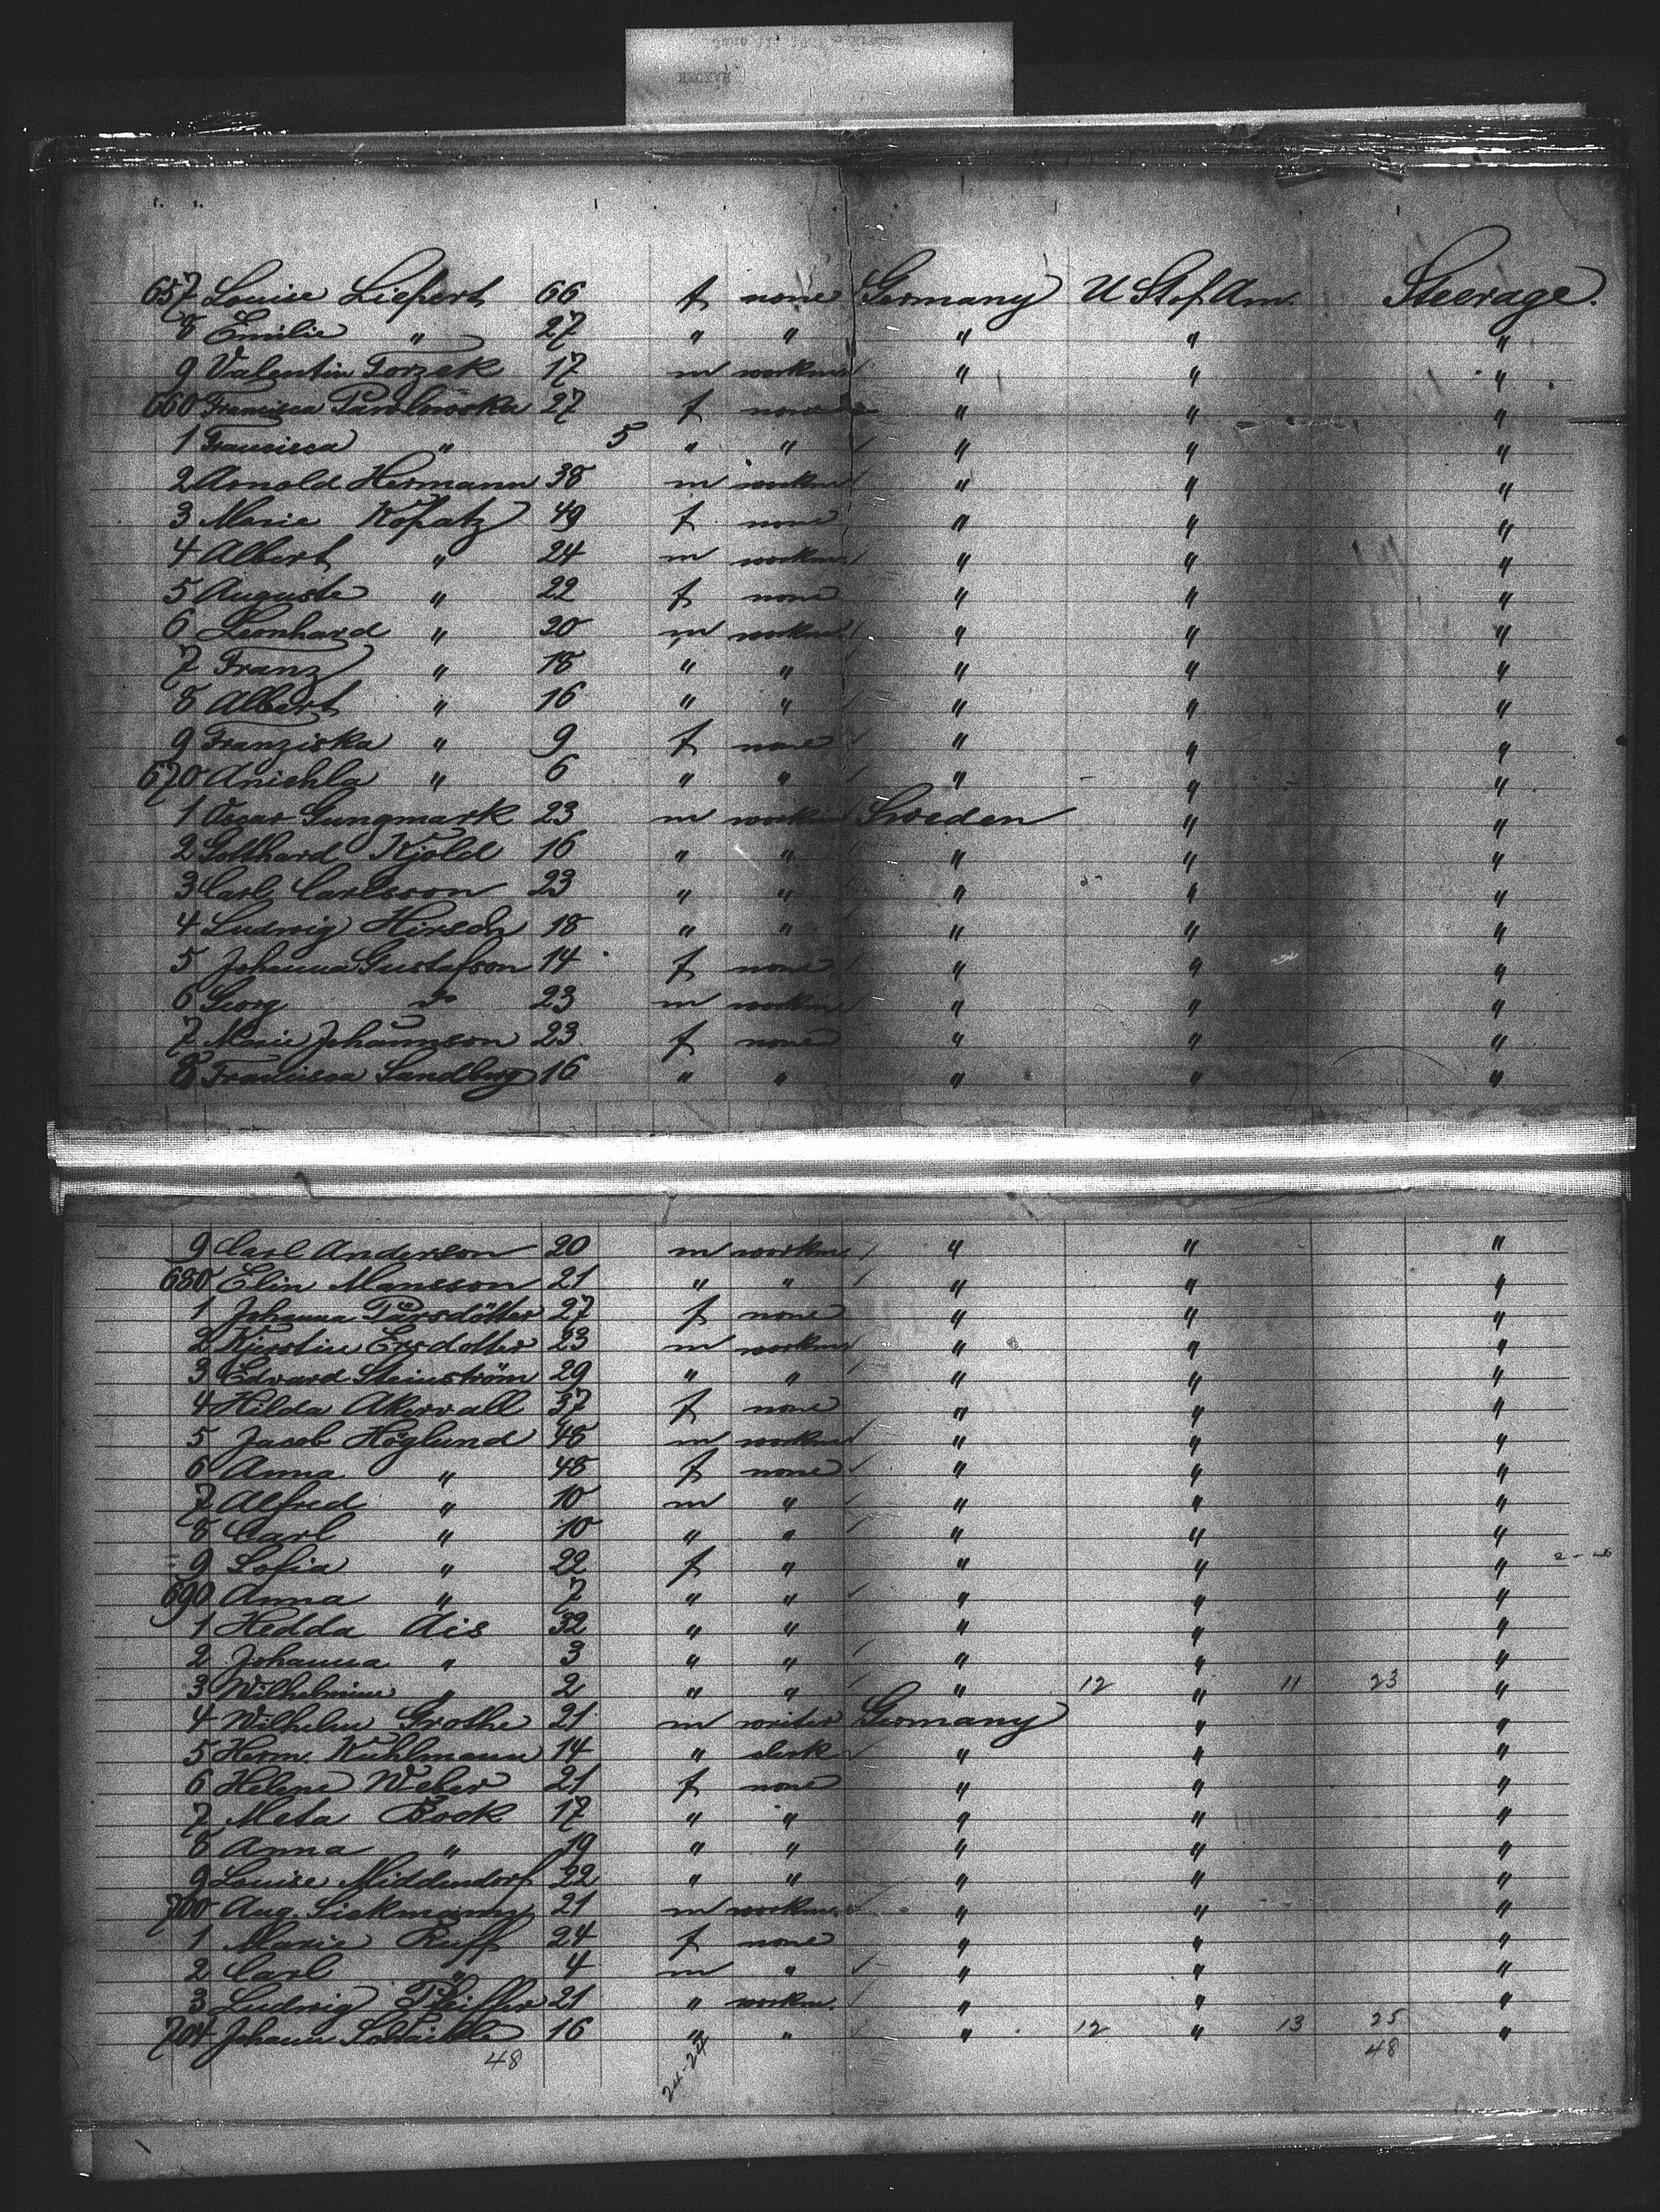 657 Louise Liepert 66 f none Germany U St of Am. Steerage.
8 Emilie " 27 " " " " "
9 Valentin Torzek 17 m workm " " "
660 Francisca 27 f none " " "
1 Francisca " 5 " " " " "
2 Arnold Hermann 38 m workm " " "
3 Marie Kopatz 49 f none " " "
4 Albert " 24 m workm " " "
5 Auguste " 22 f none " " "
6 Leonhard " 20 m workm " " "
7 Franz " 18 " " " " "
8 Albert " 16 " " " " "
9 Franziska " 9 f none " " "
670 Aniehla " 6 " " " " "
1 Oscar Gungmark 23 m workm Sweden " "
2 Gotthard Kjold 16 " " " " "
3 Carl Carlsson 23 " " " " "
4 Ludwig Hirsch 18 " " " " "
5 Johanna Gustafson 14 f none " " "
6 Georg " 23 m workm " " "
7 Marie Johannson 23 f none " " "
8 Francisca Sandberg 16 " " " " "
9 Carl Anderson 20 m workm " " "
680 Elin Mansson 21 " " " " "
1 Johanna Parsdotter 27 f none " " "
2 Kjerstin Ersdotter 23 m workm " " "
3 Edward Steinström 29 " " " " "
4 Hilda Akervall 37 f none " " "
5 Jacob Höglund 48 m workm " " "
6 Anna " 48 f none " " "
7 Alfred " 10 m " " " "
8 Carl " 10 " " " " "
9 Sofia " 22 f " " " "
690 Anna " 7 " " " " "
1 Hedda Ais 32 " " " " "
2 Johanna " 3 " " " " "
3 Wilhelmine " 2 " " " 12 " 11 23 "
4 Wilhelm Grothe 21 m writer Germany " "
5 Herm. Kuhlmann 14 " clerk " " "
6 Helene Weber 21 f none " " "
7 Meta Bock 17 " " " " "
8 Anna " 19 " " " " "
9 Louise Middendorf 22 " " " " "
700 Aug. Siekmann 21 m workm " " "
1 Marie Ruff 24 f none " " "
2 Carl " 4 m " " " "
3 Ludwig Pfeiffer 21 " workm. " " "
704 Johann 16 " " " 12 " 13 25 "
48 24-24 48